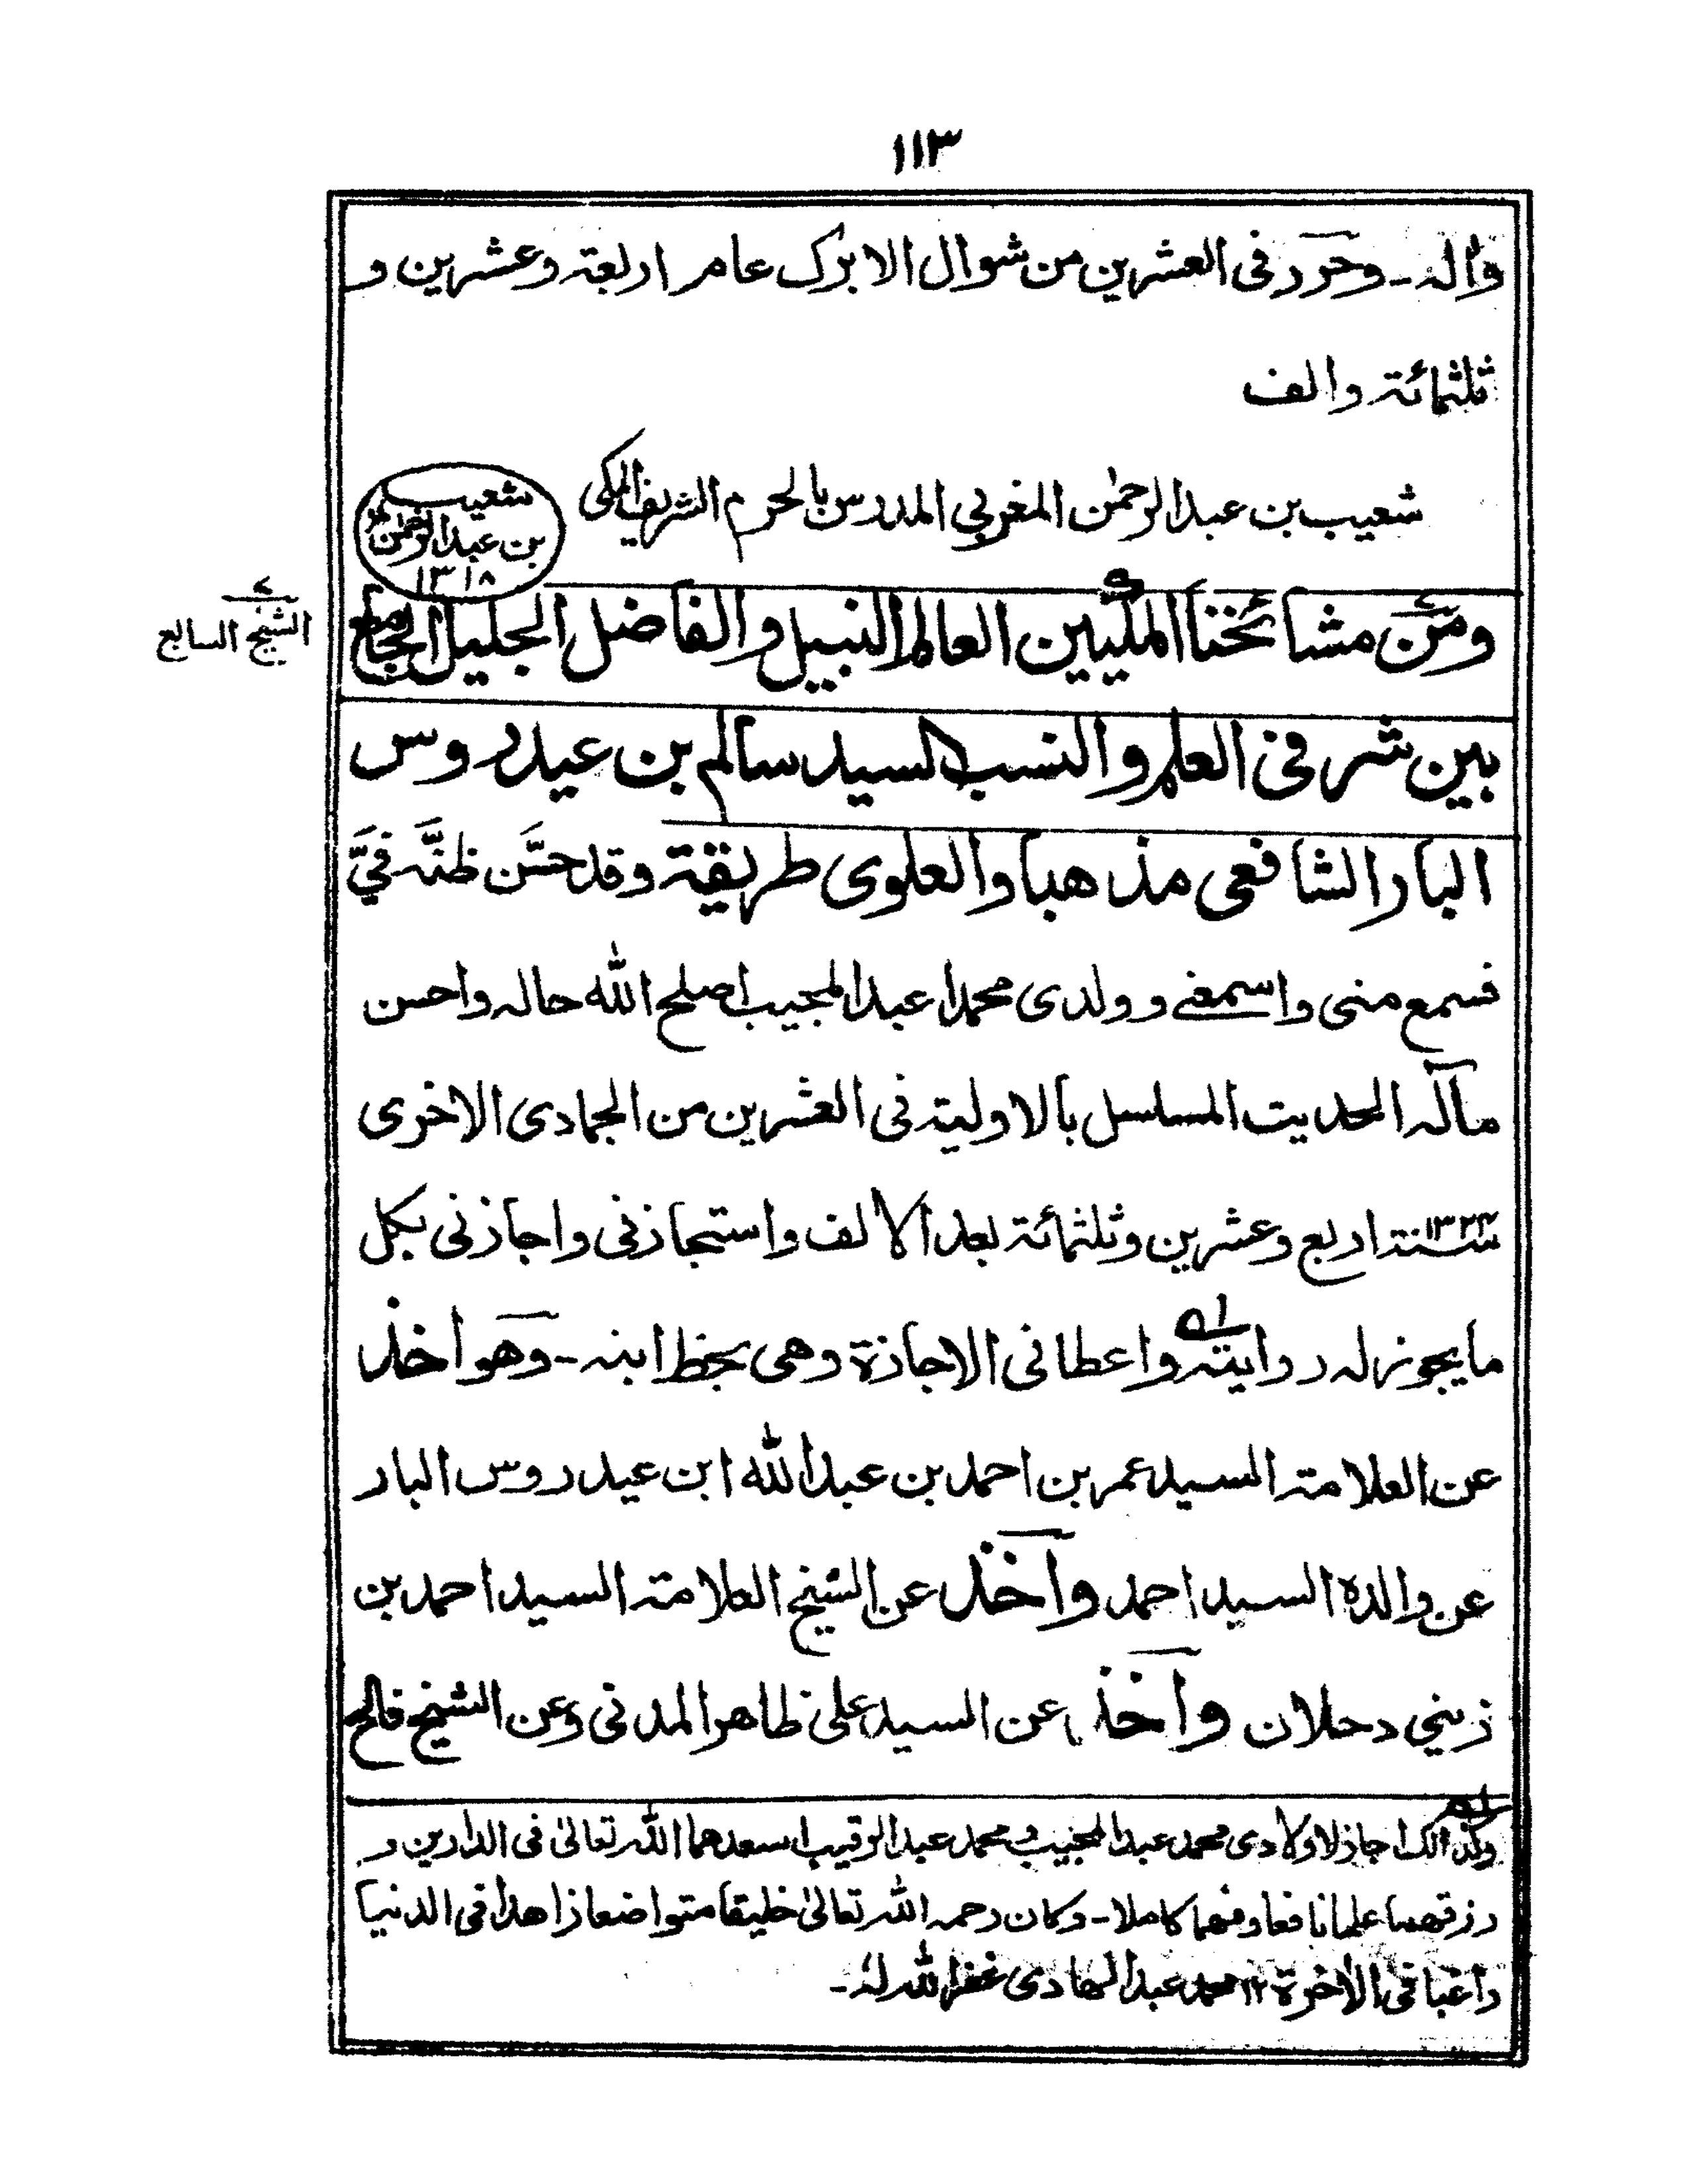 ١١٣
واٰله ـ وحرر فى العشرين من شوال الابرک عامر اربعة وعشرين و
ثلثمائة والف
شعيب بن عبدالرحمٰن المغربي المدرس بالحرم الشريف المكى
شعيب
بن عبدالرحمٰن
١٣١٨
٧
الشيخ السابع
ومن مشائخنا المكيين العالم النبيل والفاضل الجليل الجامع
بين شرفى العلم والنسب السيد سالم بن عيدروس
البار الشافعى مذهبا والعلوى طريقة وقد حسّن ظنّه فيّ
فسمع منى واسمعنے وولدى محمدا عبدالمجيب اصلح الله حاله واحسن
مآله الحديث المسلسل بالاولية فى العشرين من الجمادى الاخرى
سنة ١٣٢٤ اربع وعشرين وثلثمائة بعد الالف واستجازنى واجازنى بكل
مايجوزله روايته واعطانى الاجازة وهى بخط ابنه ـ وهو اخذ
عن العلامة السيد عمر بن احمد بن عبدالله ابن عيدروس البار
عن والده السيد احمد واخذ عن الشيخ العلامة السيد احمد بن
زيني دحلان واخذ عن السيد على ظاهر المدنى وعن الشيخ فالح
وكذالک اجاز لاولادى محمد عبدالمجيب ومحمد عبدالرقيب اسعدهما الله تعالىٰ فى الدارين و
رزقهما علما نافعا وفهما كاملا ـ وكان رحمه الله تعالىٰ خليقا متواضعا زاهدا فى الدنيا
راغبا فى الاٰخرة ١٢ محمد عبدالهادى غفرالله لهٗ ـ